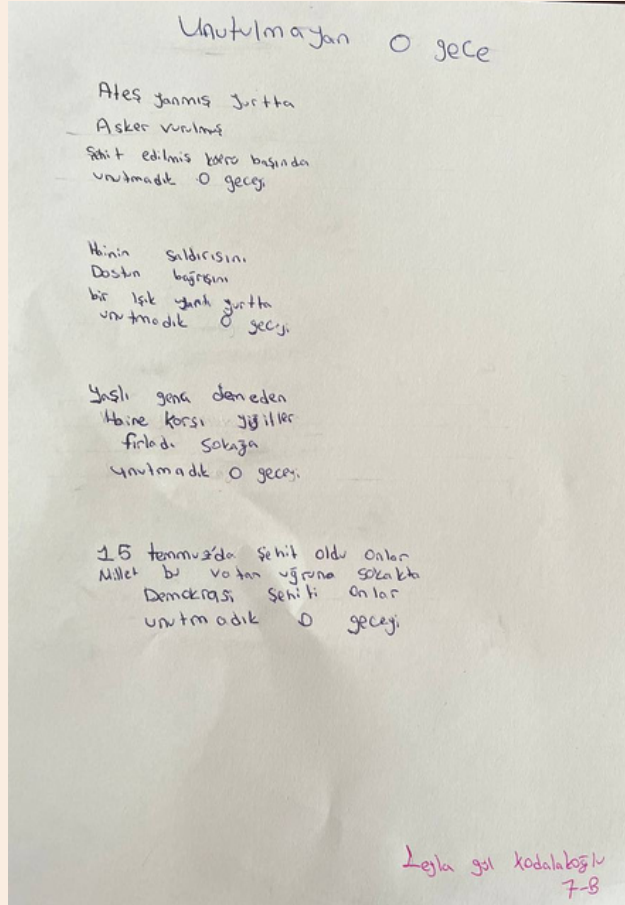 Unutulmayan O gece
Ateş yanmış yurtta
Asker vurulmuş
Şehit edilmiş başında
unutmadık O geceyi
Hainin saldırısını
Dostun bağrışını
bir Işık yandı yurtta
unutmadık O geceyi
Yaşlı genç demeden
Haine Karşı yiğitler
fırladı sokağa
unutmadık O geceyi
15 temmuz'da Şehit oldu Onlar
Millet bu vatan uğruna sokakta
Demokrasi Şehiti Onlar
unutmadık O geceyi
Leyla gül Kodalakoğlu
7-B